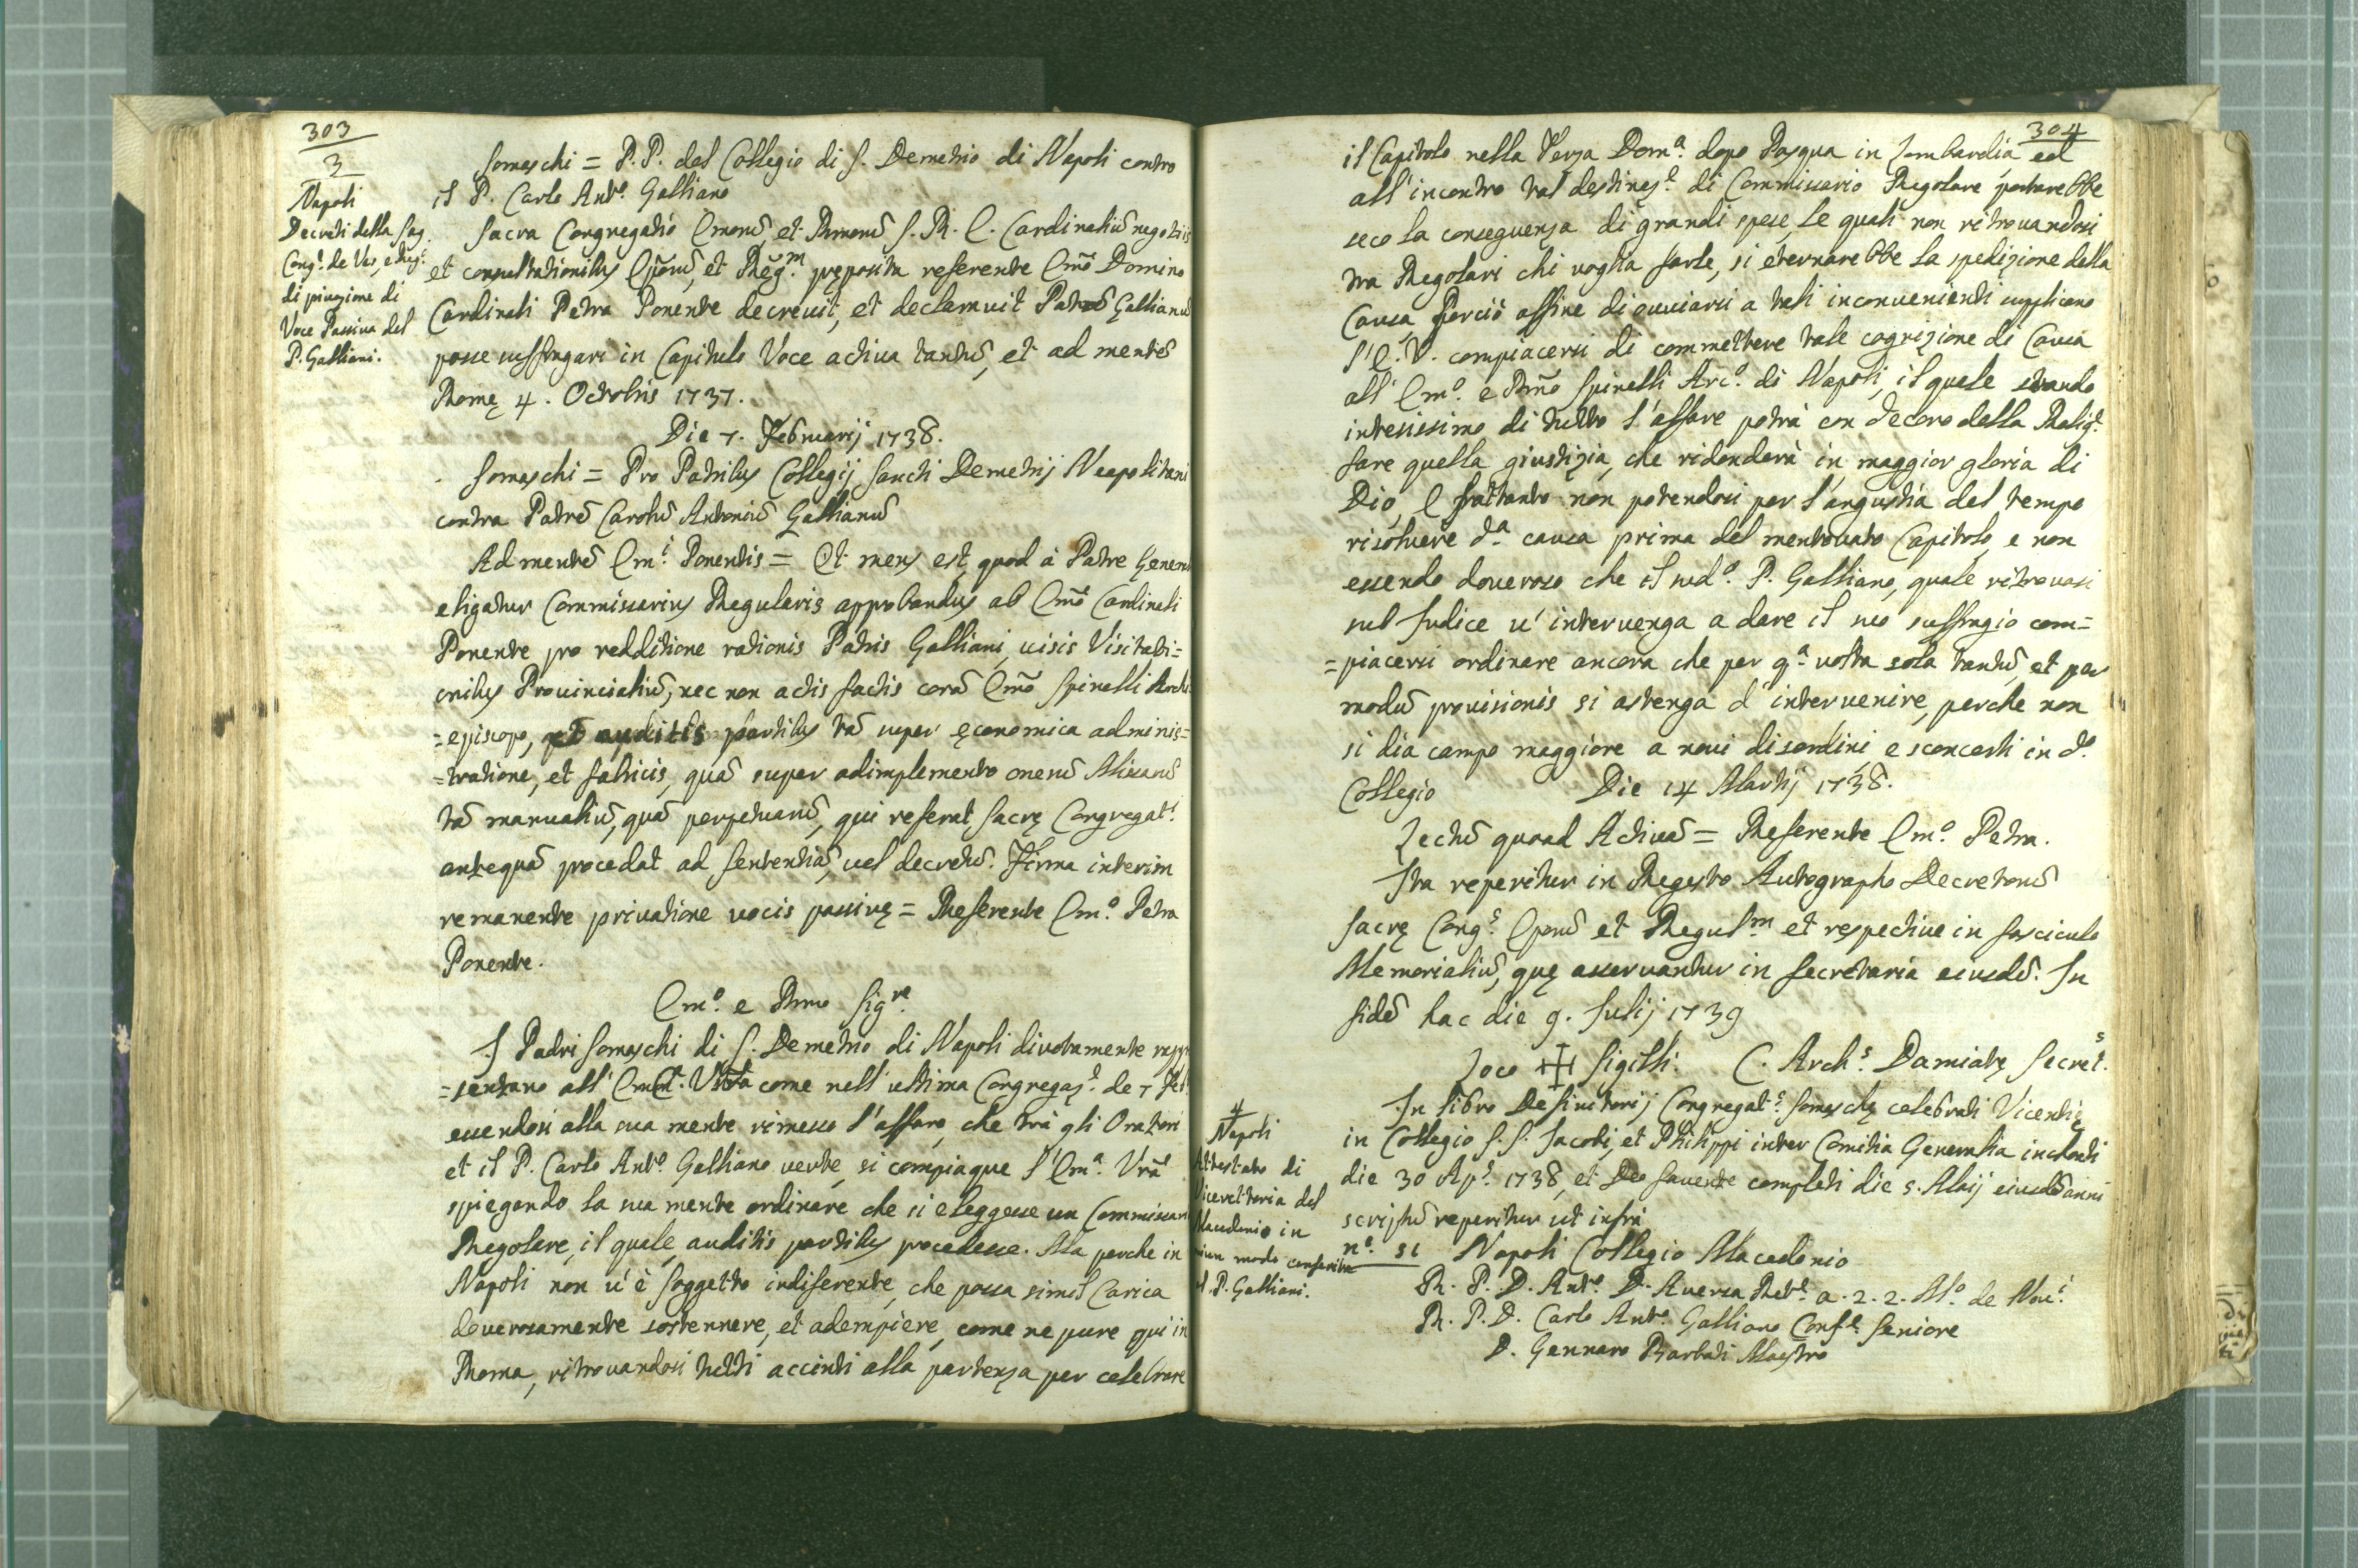 303
3
Napoli
Decreti della Sag.
Cong.e de Ves, e Reg.i
di privazione di
Voce Passiva del
P. Galliani.
Somaschi = P.P. del Collegio di S. Demetrio di Napoli contro
il P. Carlo Ant.o Galliano
Sacra Congregatio Emorū, et Rmorū S. R. E. Cardinaliū negotiis
et consultationibus Epōrū, et Reg.m pręposita referente Emō Domino
Cardinali Petra Ponente decrevit, et declaravit Patrē Gallianū
posse suffragari in Capitulo Voce activa tantū, et ad mentē
Romę 4. Octobris 1737.
Die 7. Februarij 1738.
Somaschi = Pro Patribus Collegij Sancti Demetrij Neapolitani
contra Patrē Carolū Antoniū Gallianū
Ad mentē Em.i Ponentis = Et mens est, quod à Patre General
eligatur Commissarius Regularis approbandus ab Emō Cardinali
Ponente pro redditione rationis Patris Galliani, visis Visitati=
onibus Provincialiū, nec non actis factis corā Emō Spinelli Archi
=episcopo, et auditis partibus tā super ęconomica adminis=
=tratione, et fabricis, quā super adimplemento onerū Missarū
tā manualiū, quā perpetuarū, qui referat Sacrę Congregat.i
antequā procedat ad sententiā, vel decretū. Firma interim
remanente privatione vocis passivę = Referente Em.o Petra
Ponente.
Em.o e Rmo Sig.re
I Padri Somaschi di S. Demetrio di Napoli divotamente rappr
=sentano all' come nell' ultima Congregaz.e de 7 Feb
essendosi alla sua mente rimesso l'affare, che trà gli Oratori
et il P. Carlo Ant.o Galliano verte, si compiaque l'Em.a Vrā
spiegando la sua mente ordinare che si eleggesse un Commissari
Regolare, il quale auditis partibus procedesse. Ma perche in
Napoli non v'è soggetto indiferente, che possa simil Carica
doverosamente sostennere, et adempière, come ne pure qui in
Roma, ritrovandosi tutti accinti alla partenza per celebrare
304
il Capitolo nella Terza Dom.a dopo Pasqua in Lombardia ed
all'incontro tal destinaz.e di Commissario Regolare portarebbe
seco la conseguenza di grandi spese, le quali non ritrovandosi
tra Regolari chi voglia farle, si eternarebbe la spedizione della
Causa, Perciò affine di ovviarsi a tali inconvenienti supplicano
l'E. V. compiacersi di commettere tale cognizione di Causa
all' Em.o e Rmō Spinelli Arc.o di Napoli, il quale stando
intesissimo di tutto l'affare potrà con decoro della Relig.e
fare quella giustizia, che ridonderà in maggior gloria di
Dio, E frattanto non potendosi per l'angustia del tempo
risolvere d.a causa prima del mentovato Capitolo, e non
essendo doveroso che il sud.o P. Galliano, quale ritrovasi
sub Judice v'intervenga a dare il suo suffragio com=
=piacersi ordinare ancora che per q.a volta sola tantū, et per
modū provisionis si astenga d'intervenire, perche non
si dia campo maggiore a novi disordini, e sconcerti in d.o
Collegio Die 14 Martij 1738.
Lectū quoad Activā = Referente Em.o Petra.
Ita reperitur in Regesto Autographo Decretorū
Sacrę Cong.s Eporū et Regul.m et respective in fasciculo
Memorialiū, quę asservantur in Secretaria eiusdē. In
fidē hac die 9. Julij 1739
Loco ✠ Sigilli. C. Arch.s Damiatę Secret.s
4
Napoli
Attestato di
Vicerettoria del
Macedonio in
niun modo conferita
al P. Galliani.
In libro Definitorij Congregat.s Somaschę celebrati Vicentię
in Collegio S. S. Jacobi, et Philippi inter Comitia Generalia inchoati
die 30 Ap.s 1738, et Deo favente completi die 5. Maij eiusdē anni
scriptū reperitur ut infrà
n.o 51 Napoli Collegio Macedonio
R. P. D. Ant.o D. Aversa Ret.e a. 2. 2. M.o de Nov.i
R. P. D. Carlo Ant.o Galliano Conf.e Seniore
D. Gennaro Barbati Maestro